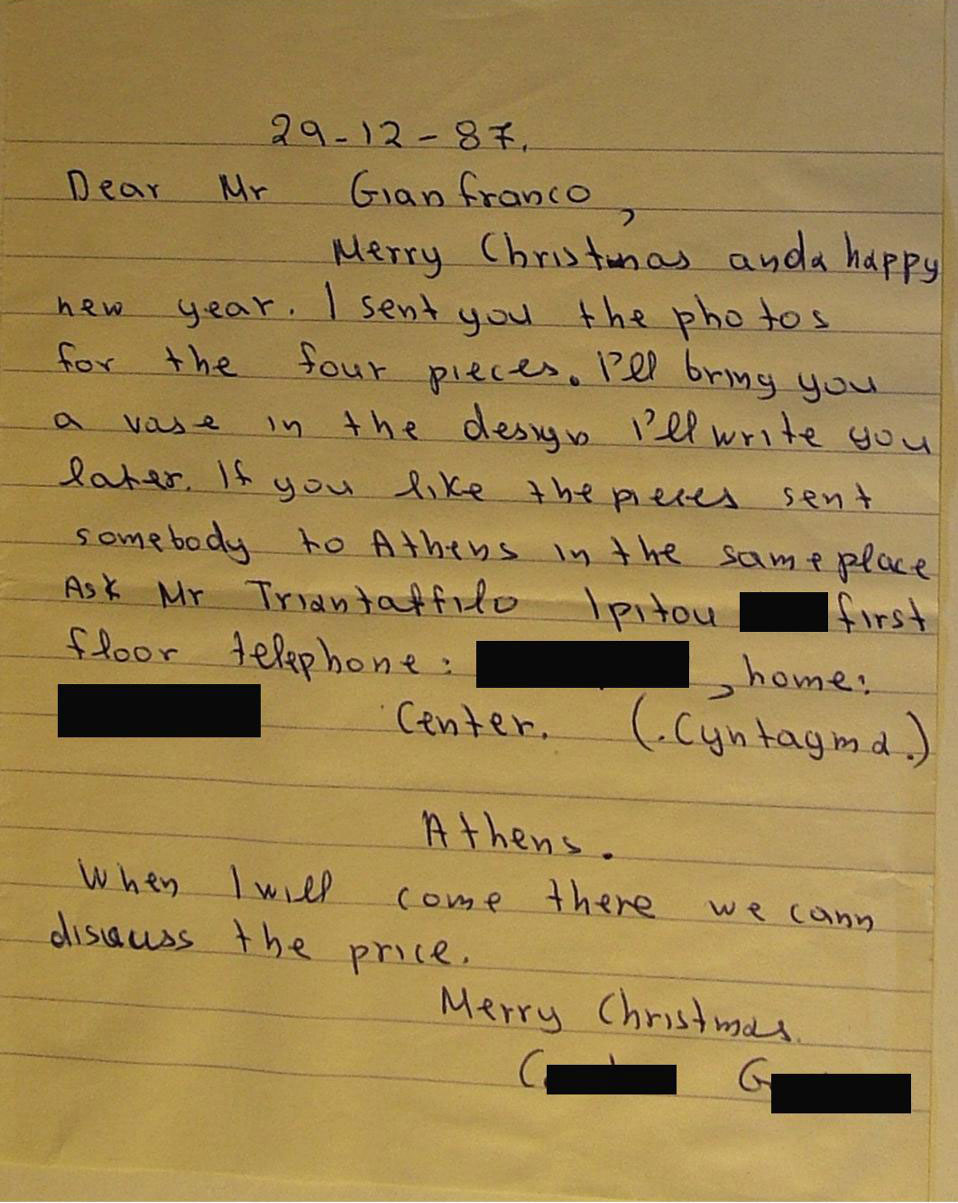 29-12-87.
Dear Mr Gianfranco,
Merry Christmas anda happy
new year. I sent you the photos
for the four pieces. I'll bring you
a vase in the design I'll write you
later. If you like the pieces sent
somebody to Athens in the same place
Ask Mr Triantaffilo Ipitou first
floor telephone: , home:
Center. (.Cyntagma.)
Athens.
When I will come there we cann
disscuss the price.
Merry Christmas.
C G